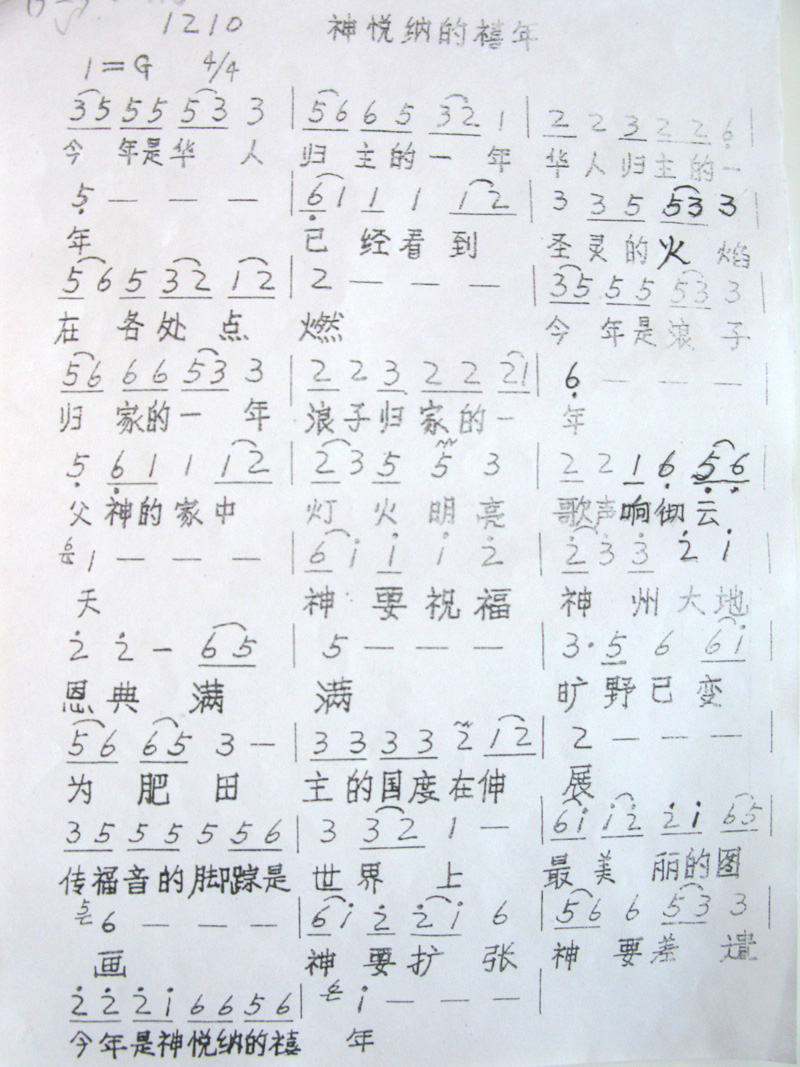 1210 神悦纳的禧年
1=G 4/4
35 55 53 3 | 56 6 5 32 1 | 2 2 3 2 2 6
今 年是华 人 归 主的一 年 华人归主的一
5 — — — | 61 1 1 12 | 3 3 5 53 3 |
年 已 经看到 圣灵的火 焰
56 5 32 12 | 2 — — — | 35 55 53 3 |
在 各处点 燃 今 年是浪 子
56 66 53 3 | 2 2 3 2 2 21 | 6 — — — |
归 家的一 年 浪子归家的一 年
5 61 1 12 | 23 5 5 3 | 2 2 1 6 56
父神的家中 灯火明亮 歌声响彻云
6 1 — — — | 6i i i 2 | 23 3 2 i
天 神要祝福 神州大地
2 2 — 65 | 5 — — — | 3·5 6 6i
恩典 满 满 旷野已变
56 65 3 — | 33 33 2 12 | 2 — — — |
为 肥 田 主的国度在伸 展
35 55 5 56 | 3 32 1 — | 6i i2 2i 65
传福音的脚踪是 世界 上 最美 丽的图
5 6 — — — | 6i 2 2i 6 | 56 6 53 3 |
画 神要扩 张 神 要差 遣
22 2i 66 56 | 6 i — — — |
今年是神悦纳的禧 年